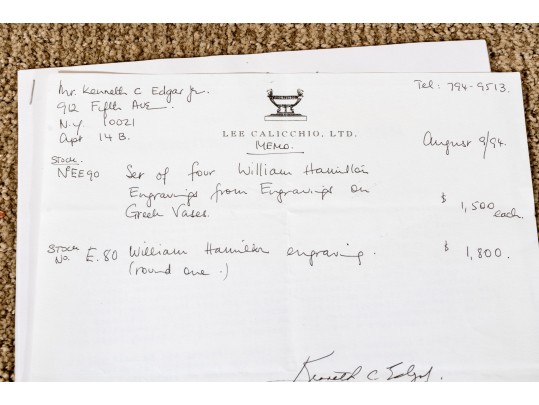 Mr. Kenneth C Edgar Jr.
912 Fifth Ave.
N.Y. 10021
Apt 14 B.
Tel: 794-9513.
LEE CALICCHIO, LTD.
MEMO.
August 9/94.
Stock
No EE90 Set of four William Hamilton
Engravings from Engravings on
Greek Vases. $ 1,500 each.
Stock
No. E.80 William Hamilton engraving.
(round one.) $ 1,800.
Kenneth C Edgar.